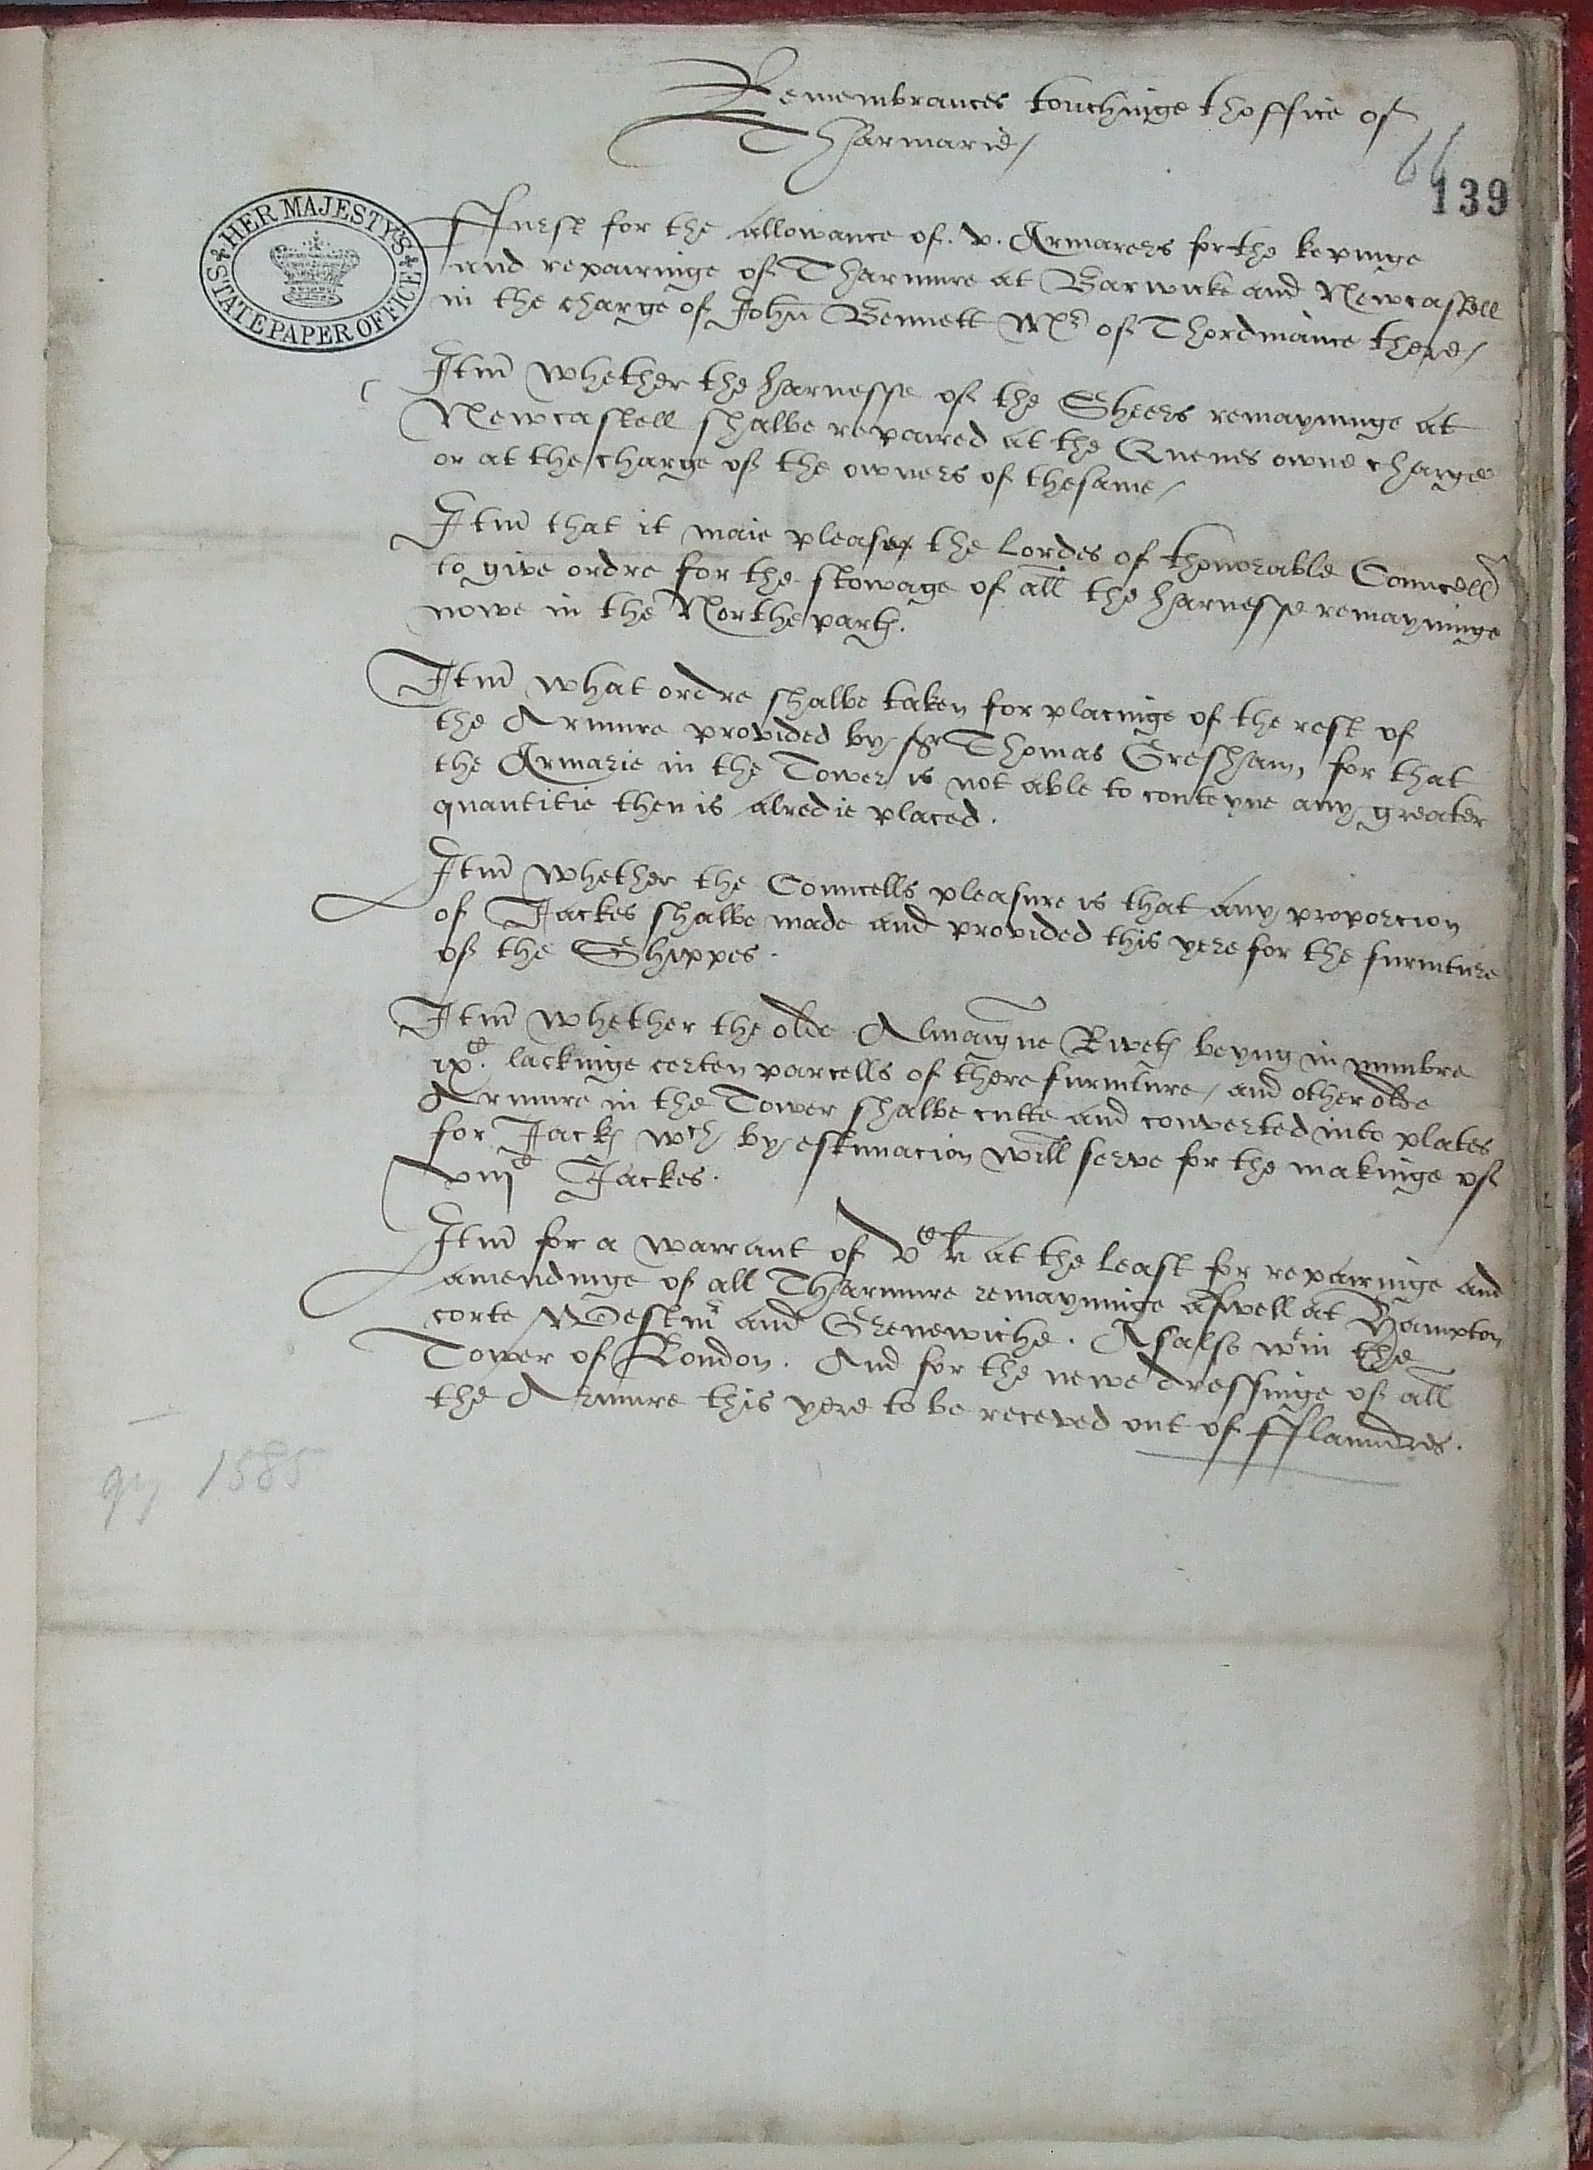 Remembrances touchinge thoffice of
Tharmarie /
66
139
HER MAJESTY'S
STATE PAPER OFFICE
ffurst for the allowance of .v. Armarers for the kepinge
and repairinge of Tharmure at Barwicke and Newcastell
in the charge of John Bennett Mr of Thordinaunce there /
Itm whether the harnesse of the Sheers remayninge at
Newcastell shalbe repaired at the Quenes owne charge
or at the charge of the owners of thesame /
Itm that it maie please the Lordes of thonorable Councell
to give ordre for the stowage of all the harnesse remayninge
nowe in the Northe part.
Itm what ordre shalbe taken for placinge of the rest of
the Armure provided by Sr Thomas Gresham, for that
the Armarie in the Tower is not able to conteyne any greater
quantitie then is alredie placed.
Itm whether the Councells pleasure is that any proporcion
of Jackes shalbe made and provided this yere for the furniture
of the Shippes.
Itm whether the olde Almaigne Rivet beyng in numbre
ixC. lackinge certen parcells of there furniture, and other olde
Armure in the Tower shalbe cutte and converted into plates
for Jack wch by estimacion will serve for the makinge of
viijC Jackes.
Itm for a warrant of vC li at the least for repairinge and
amendinge of all Tharmure remayninge aswell at Hampton
corte Westmr and Grenewiche. As also wtin the
Tower of London. And for the newe dressinge of all
the Armure this yere to be receved out of fflaundres.
qy 1585